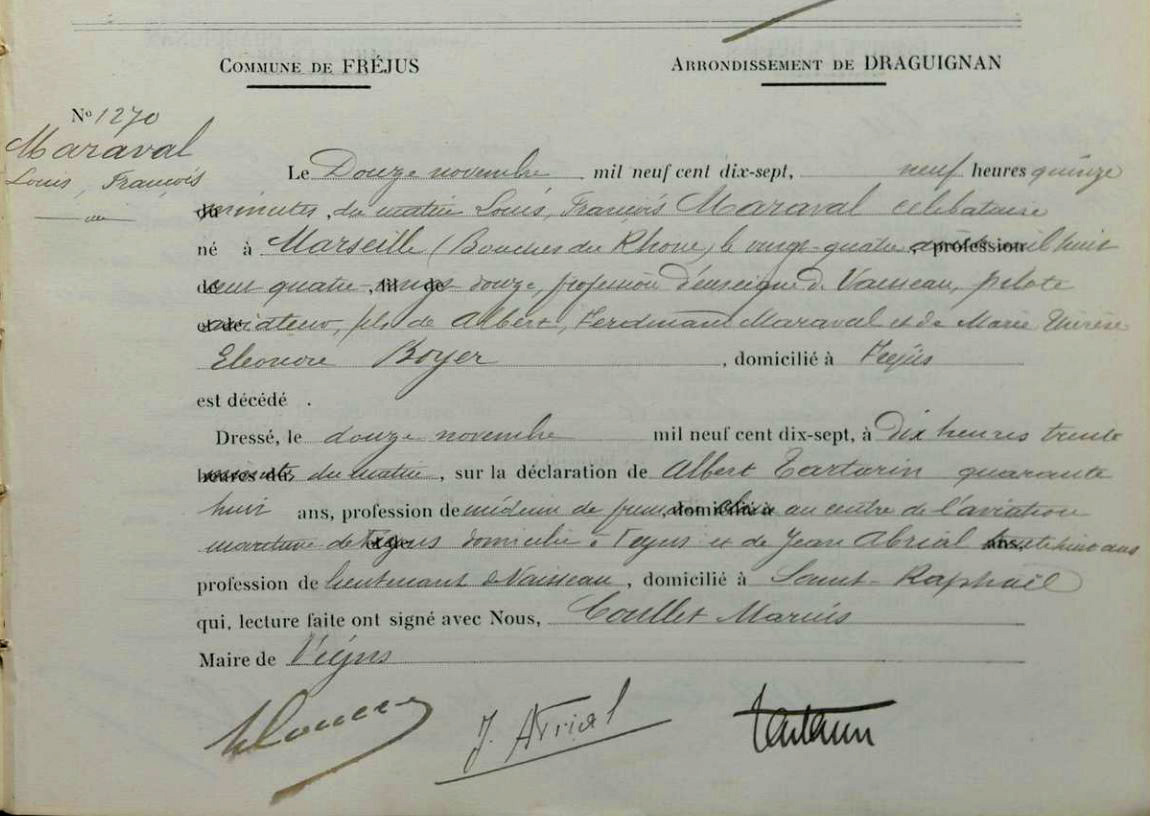 COMMUNE DE FRÉJUS
ARRONDISSEMENT DE DRAGUIGNAN
No 1270
Maraval
Louis, François
Le Douze novembre, mil neuf cent dix-sept, neuf heures quinze
minutes, du matin Louis, François Maraval célibataire
né à Marseille (Bouches du Rhone) le vingt-quatre profession mil huit
cent quatre-vingt douze, profession d'enseigne de Vaisseau, pilote
aviateur, fils de Albert, Ferdinand Maraval et de Marie Thérèse
Eléonore Boyer, domicilié à Fréjus
est décédé.
Dressé, le douze novembre mil neuf cent dix-sept, à dix heures trente
minutes du matin, sur la déclaration de Albert Tartarin quarante
huit ans, profession de médecin de domicilié à au centre de l'aviation
maritime de Fréjus domicilié à Fréjus et de Jean Abrial ans
profession de lieutenant de Vaisseau, domicilié à Saint-Raphaël
qui, lecture faite ont signé avec Nous, Coullet Marius
Maire de Fréjus
J. Abrial
Tartarin